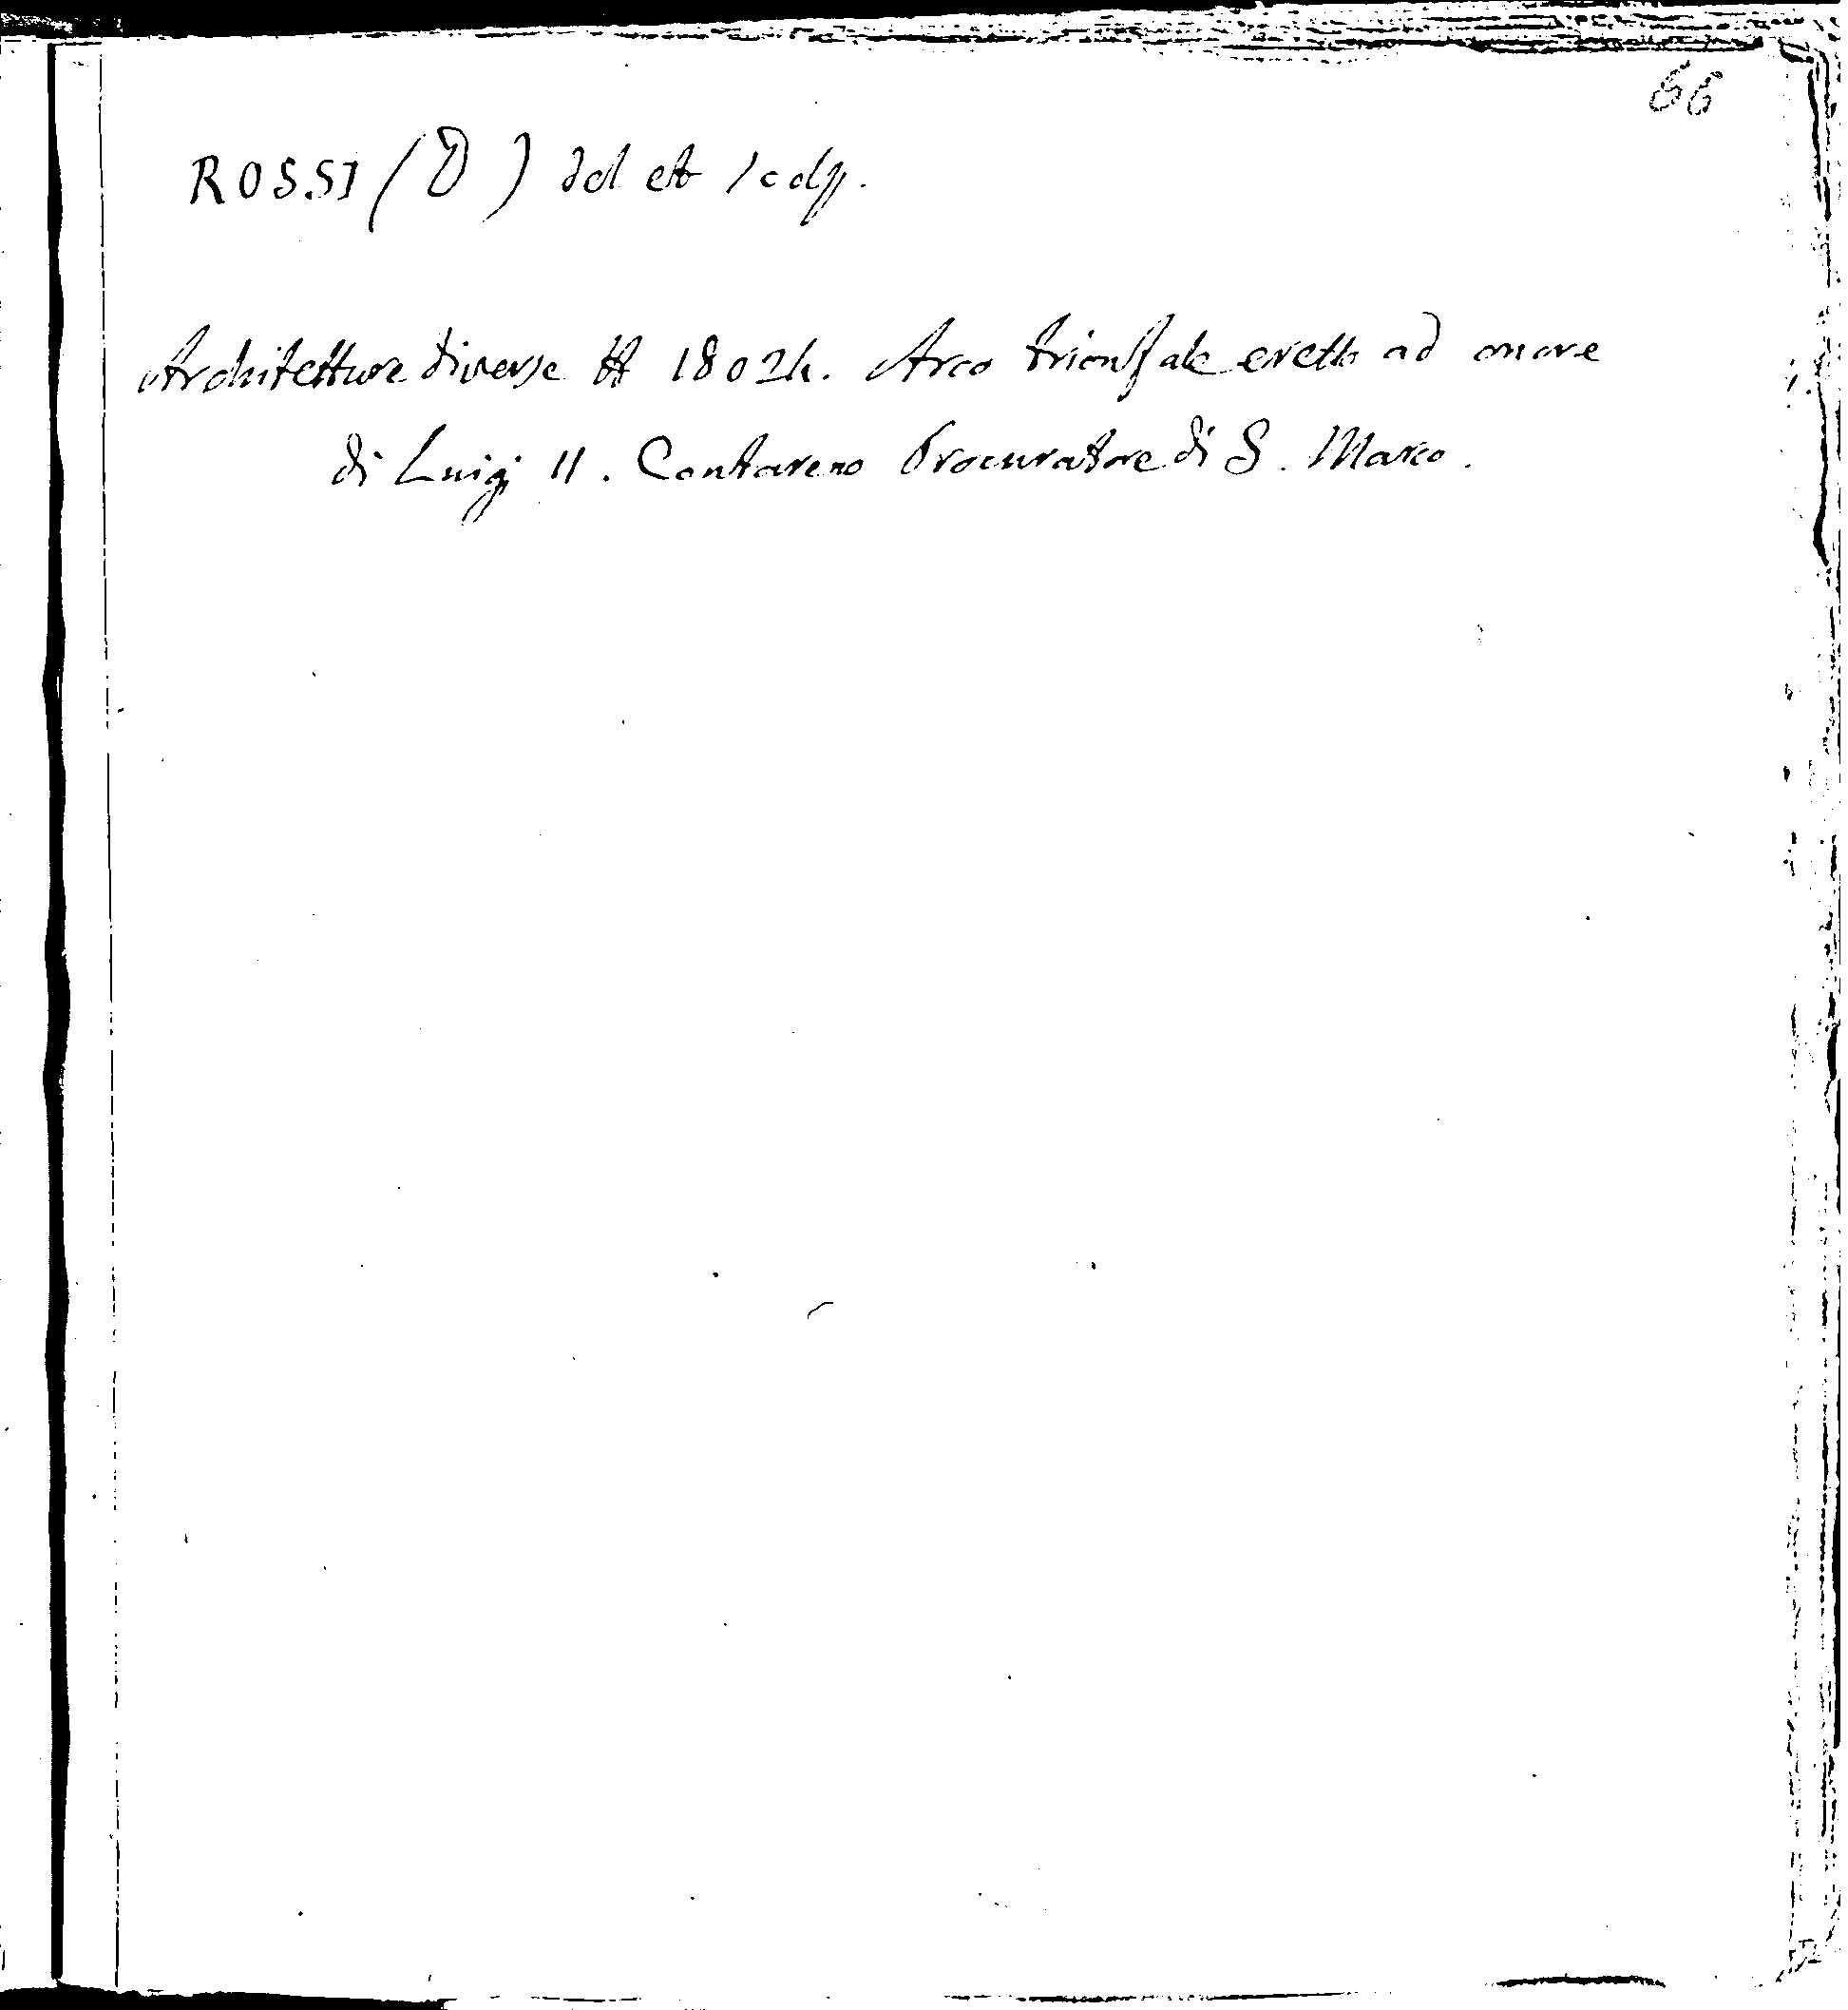 66
ROSSI (D) del et scolp.
Architetture diverse tt 1802h. Arco trionfale eretto ad onore
di Luigi II. Contareno Procuratore di S. Marco.